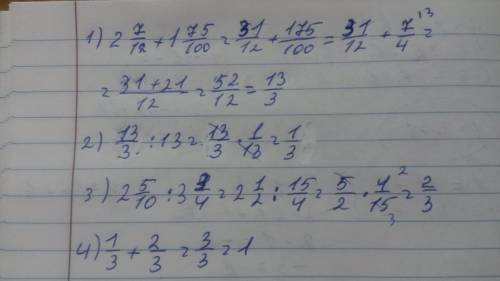 1) 2 7/12 + 1 75/100 = 31/12 + 175/100 = 31/12 + 7/4 ¹³ =
= 31+21/12 = 52/12 = 13/3
2) 13/3 : 13 = 13/3 · 1/13 = 1/3
3) 2 5/10 : 3 3/4 = 2 1/2 : 15/4 = 5/2 · 4/15 ² ₃ = 2/3
4) 1/3 + 2/3 = 3/3 = 1